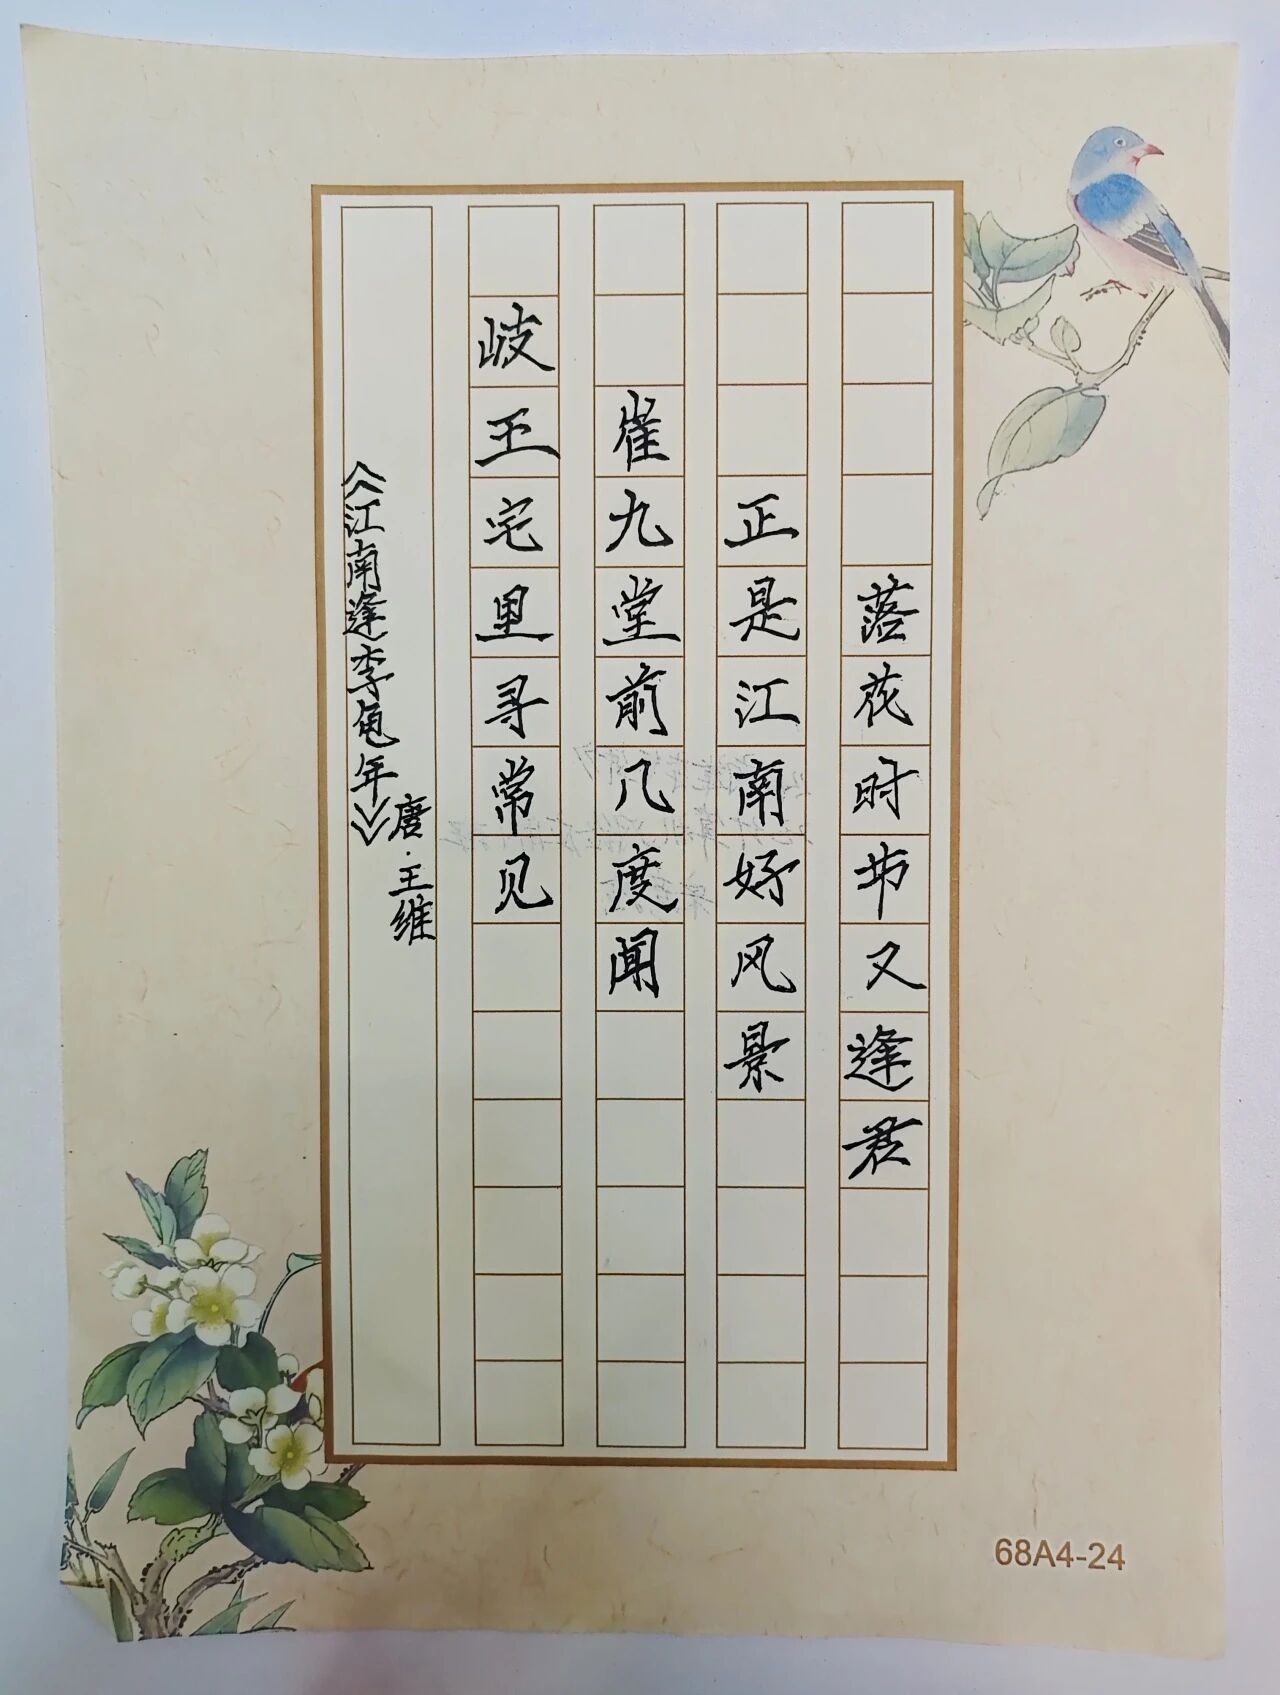 《江南逢李龟年》
唐·王维
岐王宅里寻常见
崔九堂前几度闻
正是江南好风景
落花时节又逢君
68A4-24